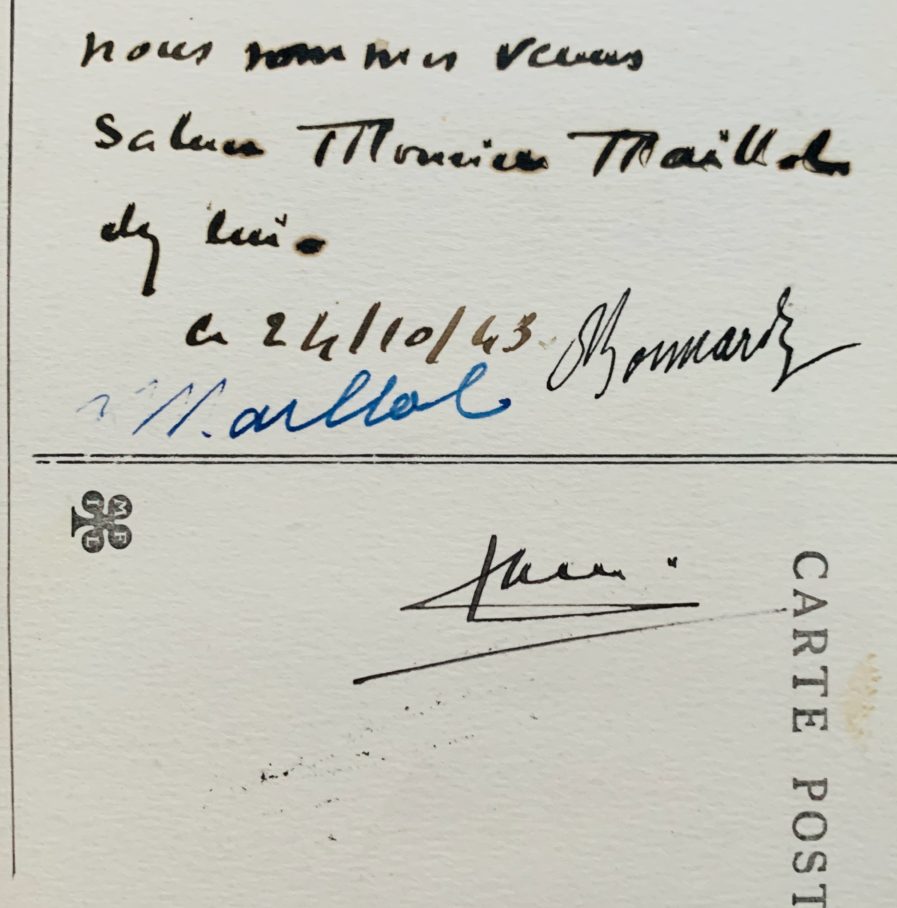 nous sommes venus
saluer Monsieur Maillol
chez lui.
ce 24/10/43
Bonnard
Maillol
CARTE POST